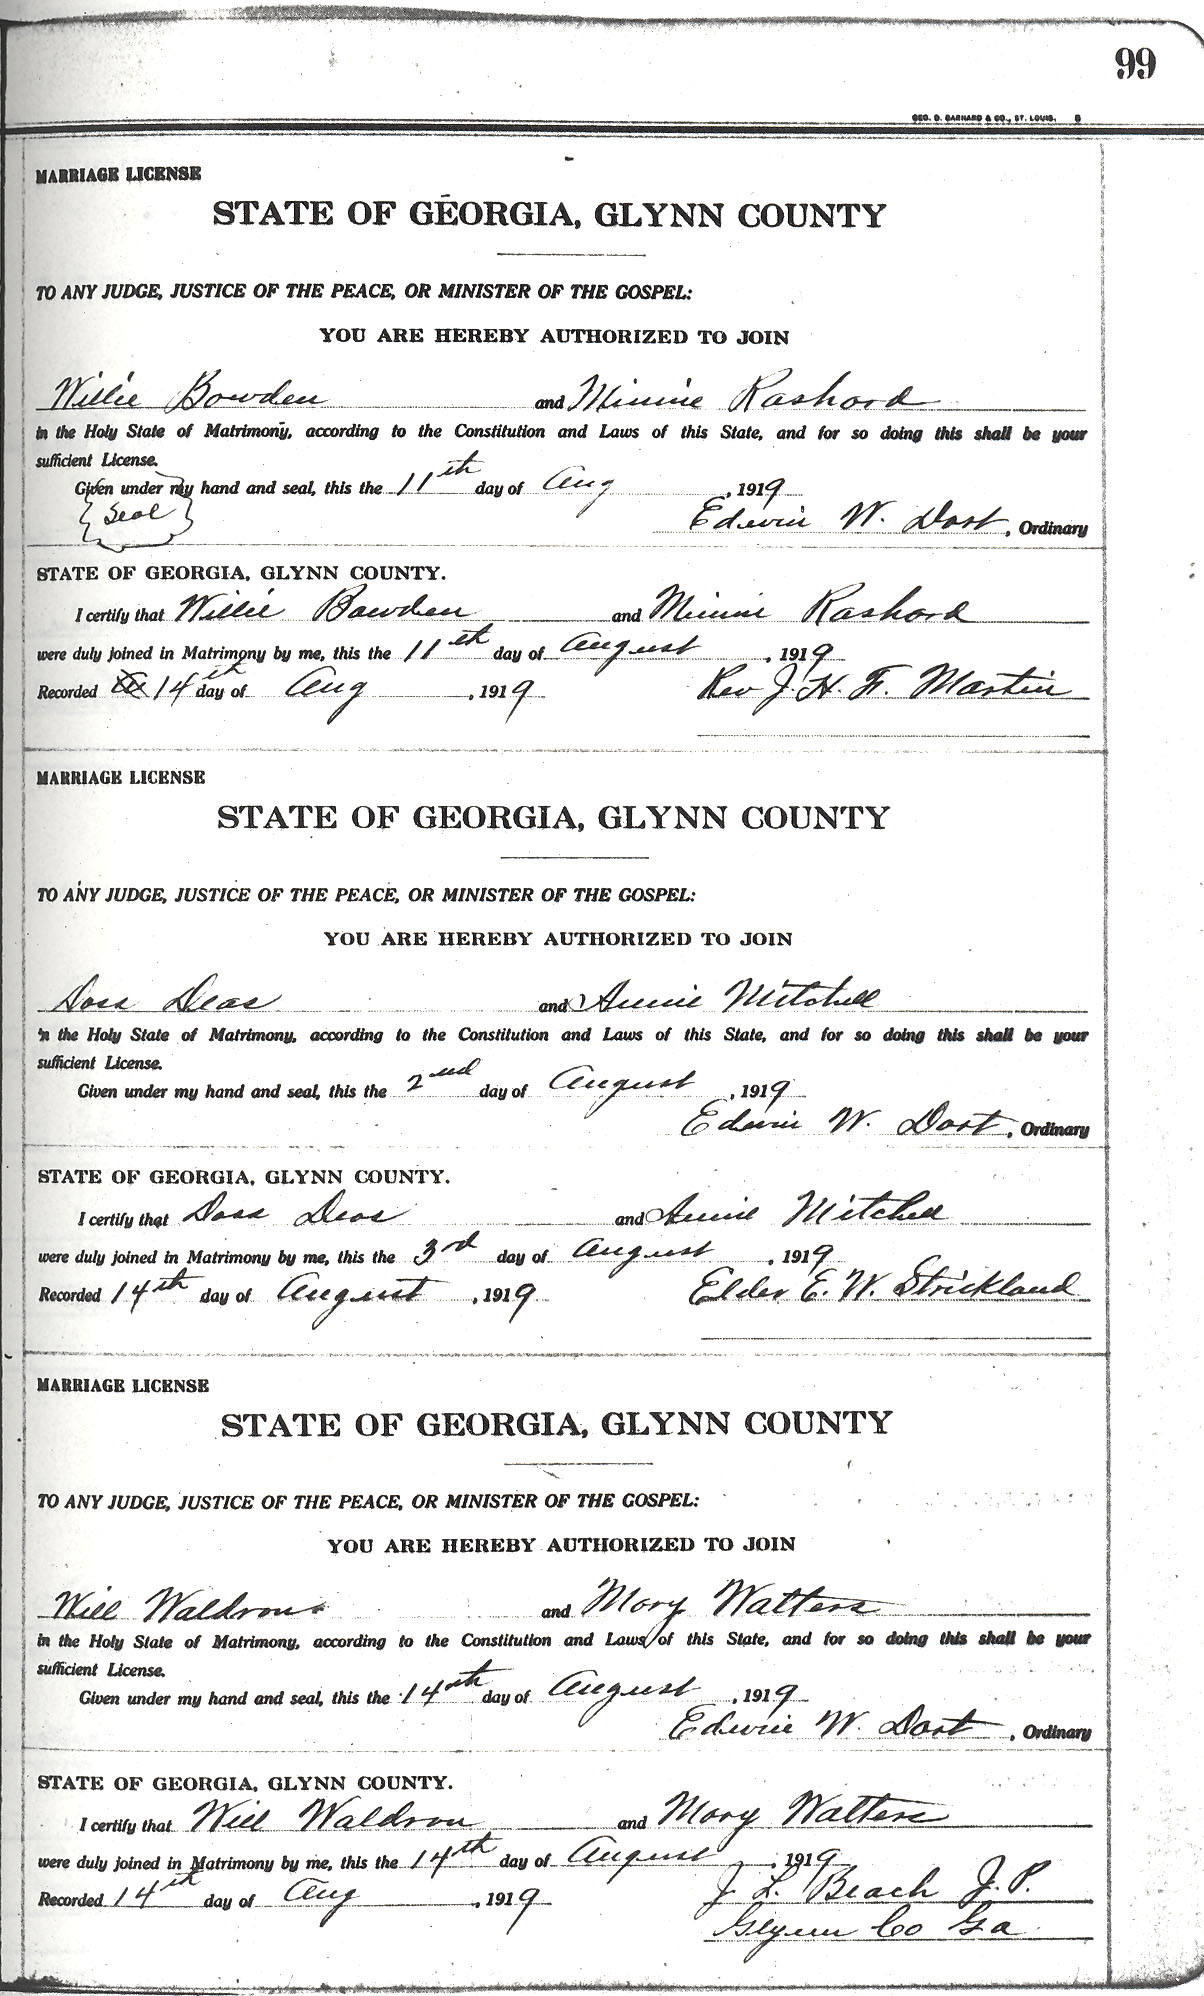 99
GEO. D. BARNARD & CO., ST. LOUIS. G
MARRIAGE LICENSE
STATE OF GEORGIA, GLYNN COUNTY
TO ANY JUDGE, JUSTICE OF THE PEACE, OR MINISTER OF THE GOSPEL:
YOU ARE HEREBY AUTHORIZED TO JOIN
Willie Bowden and Minnie Rashord
in the Holy State of Matrimony, according to the Constitution and Laws of this State, and for so doing this shall be your
sufficient License.
Given under my hand and seal, this the 11th day of Aug, 1919
Seal
Edwin W. Dart, Ordinary
STATE OF GEORGIA, GLYNN COUNTY.
I certify that Willie Bowden and Minnie Rashord
were duly joined in Matrimony by me, this the 11th day of August, 1919
Recorded 14th day of Aug, 1919 Rev J. H. F. Martin
MARRIAGE LICENSE
STATE OF GEORGIA, GLYNN COUNTY
TO ANY JUDGE, JUSTICE OF THE PEACE, OR MINISTER OF THE GOSPEL:
YOU ARE HEREBY AUTHORIZED TO JOIN
Doss Deas and Annie Mitchell
in the Holy State of Matrimony, according to the Constitution and Laws of this State, and for so doing this shall be your
sufficient License.
Given under my hand and seal, this the 2nd day of August, 1919
Edwin W. Dart, Ordinary
STATE OF GEORGIA, GLYNN COUNTY.
I certify that Doss Deas and Annie Mitchell
were duly joined in Matrimony by me, this the 3rd day of August, 1919
Recorded 14th day of August, 1919 Elder E. W. Strickland
MARRIAGE LICENSE
STATE OF GEORGIA, GLYNN COUNTY
TO ANY JUDGE, JUSTICE OF THE PEACE, OR MINISTER OF THE GOSPEL:
YOU ARE HEREBY AUTHORIZED TO JOIN
Will Waldron and Mary Watters
in the Holy State of Matrimony, according to the Constitution and Laws of this State, and for so doing this shall be your
sufficient License.
Given under my hand and seal, this the 14th day of August, 1919
Edwin W. Dart, Ordinary
STATE OF GEORGIA, GLYNN COUNTY.
I certify that Will Waldron and Mary Walters
were duly joined in Matrimony by me, this the 14th day of August, 1919
Recorded 14th day of Aug, 1919 J. L. Beach J. P.
Glynn Co Ga